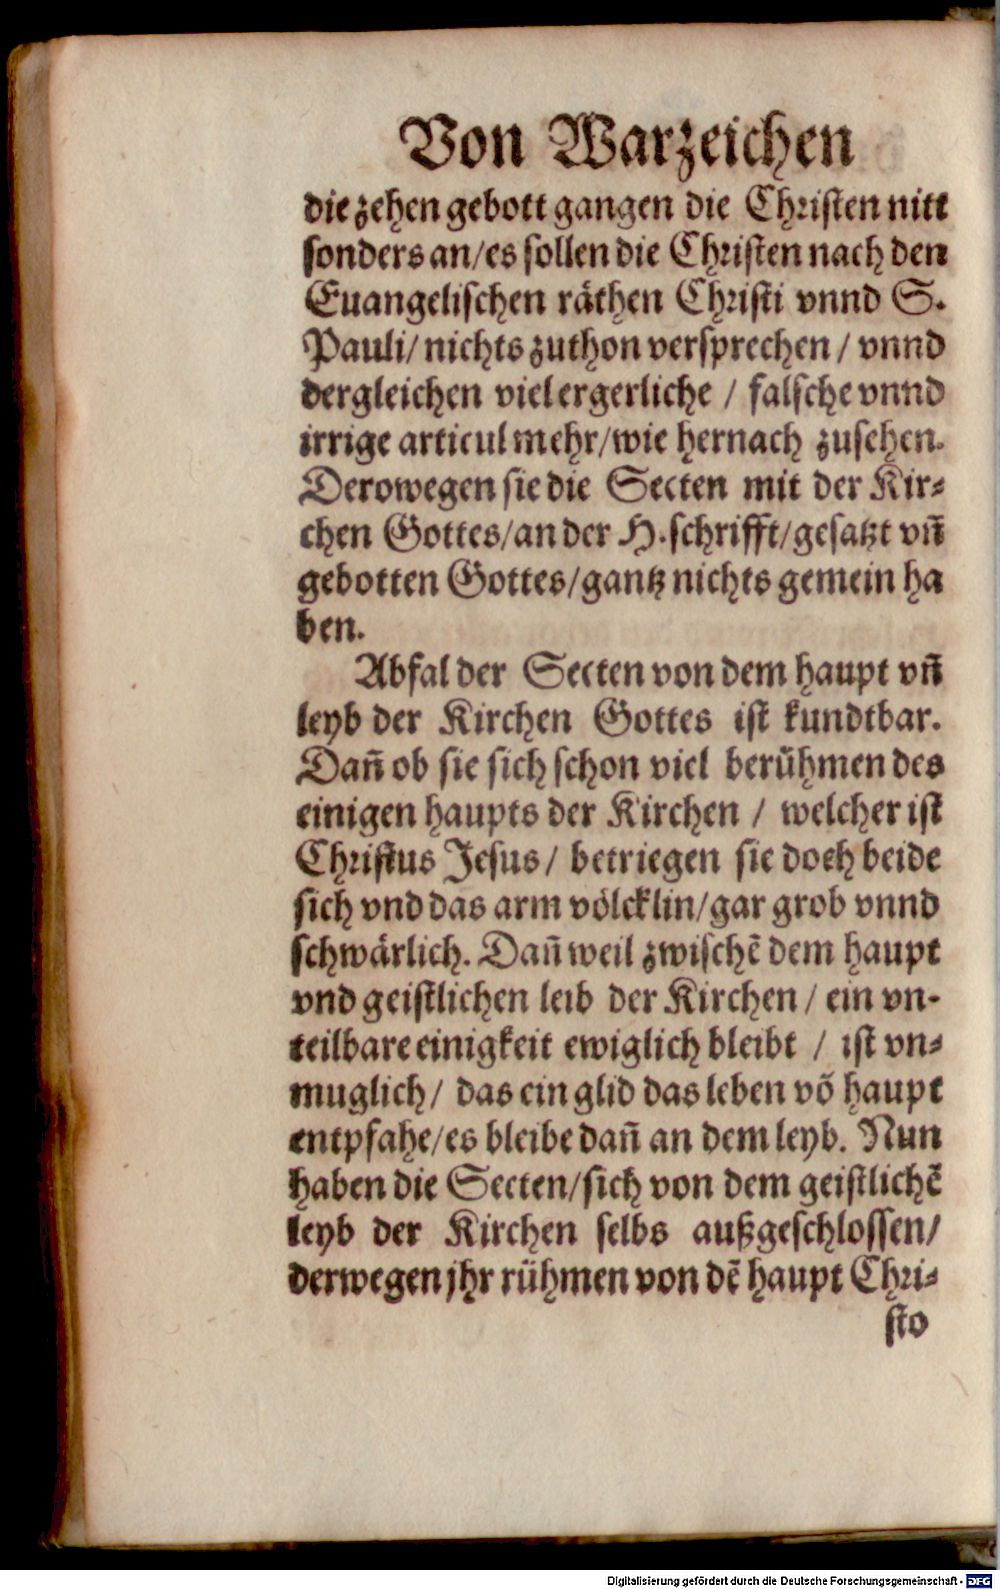 Von Warzeichen
die zehen gebott gangen die Christen nitt
sonders an/es sollen die Christen nach den
Euangelischen räthen Christi vnnd S.
Pauli/ nichts zuthon versprechen / vnnd
dergleichen viel ergerliche / falsche vnnd
irrige articul mehr/wie hernach zusehen.
Derowegen sie die Secten mit der Kir⸗
chen Gottes/an der H.schrifft/gesatzt vñ
gebotten Gottes/gantz nichts gemein ha
ben.
Abfal der Secten von dem haupt vñ
leyb der Kirchen Gottes ist kundtbar.
Dañ ob sie sich schon viel berühmen des
einigen haupts der Kirchen / welcher ist
Christus Jesus/ betriegen sie doch beide
sich vnd das arm völcklin/gar grob vnnd
schwärlich. Dañ weil zwischẽ dem haupt
vnd geistlichen leib der Kirchen / ein vn-
teilbare einigkeit ewiglich bleibt / ist vn⸗
muglich/ das ein glid das leben võ haupt
entpfahe/es bleibe dañ an dem leyb. Nun
haben die Secten/sich von dem geistlichẽ
leyb der Kirchen selbs außgeschlossen/
derwegen jhr rühmen von dẽ haupt Chri⸗
sto
Digitalisierung gefördert durch die Deutsche Forschungsgemeinschaft - DFG